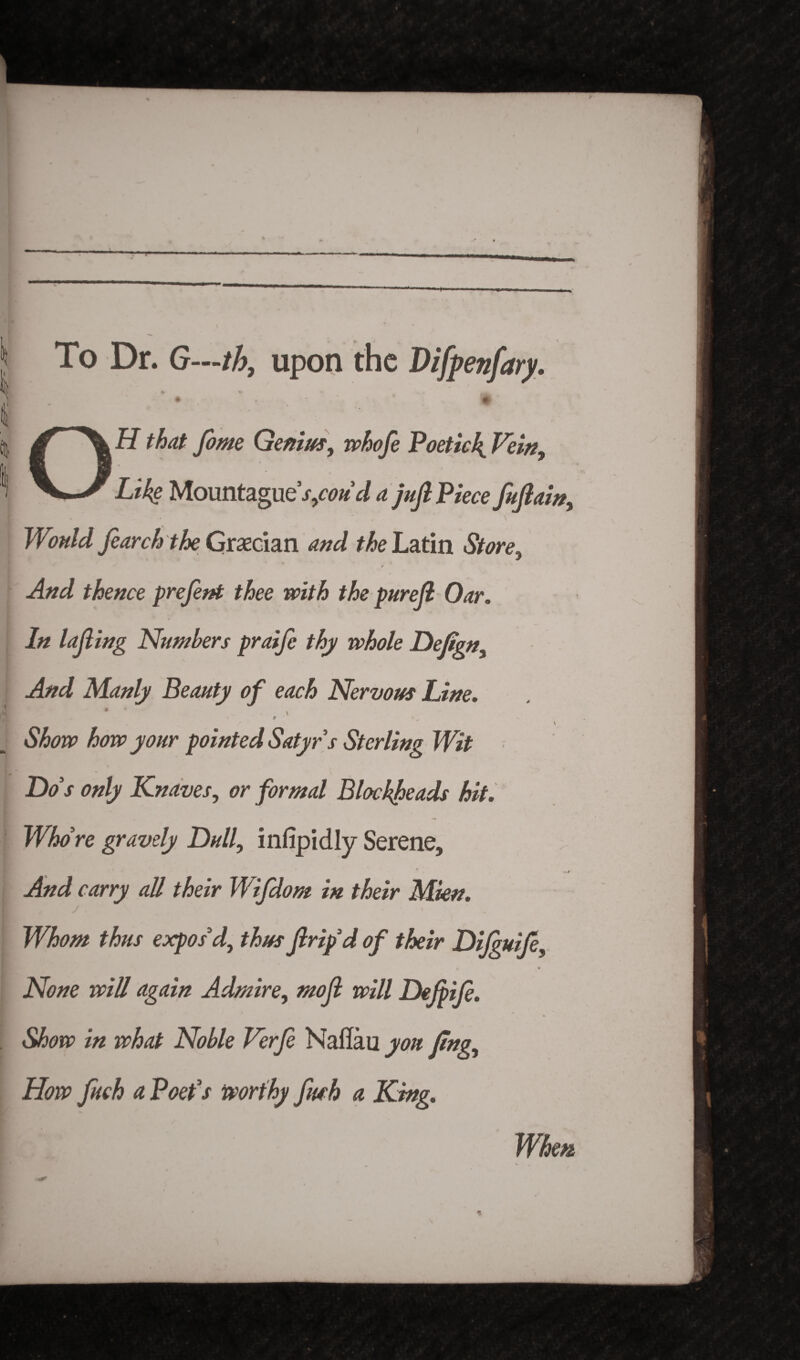 To Dr. G---th, upon the Diſpenſary.
OH that ſome Genius, whoſe Poetick Vein,
Like Mountague's, cou'd a juſt Piece ſuſtain,
Would ſearch the Græcian and the Latin Store,
And thence preſent thee with the pureſt Oar.
In laſting Numbers praiſe thy whole Deſign,
And Manly Beauty of each Nervous Line.
Show how your pointed Satyr's Sterling Wit
Do's only Knaves, or formal Blockheads hit.
Who're gravely Dull, inſipidly Serene,
And carry all their Wiſdom in their Mien.
Whom thus expos'd, thus ſtrip'd of their Diſguiſe,
None will again Admire, moſt will Deſpiſe.
Show in what Noble Verſe Naſſau you ſing,
How ſuch a Poet's worthy ſuch a King.
When